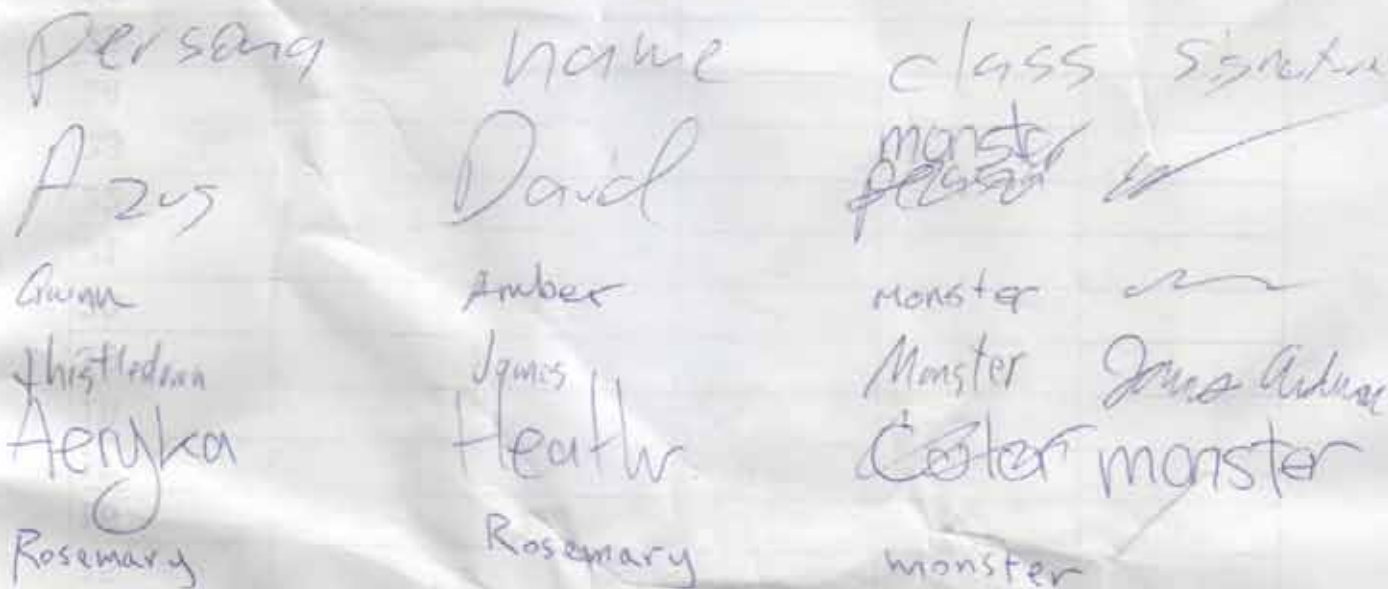 persona name class signature
Azus David monster
Gwynn Amber monster
thistledown James Monster James
Aeryka Heathr Color monster
Rosemary Rosemary monster